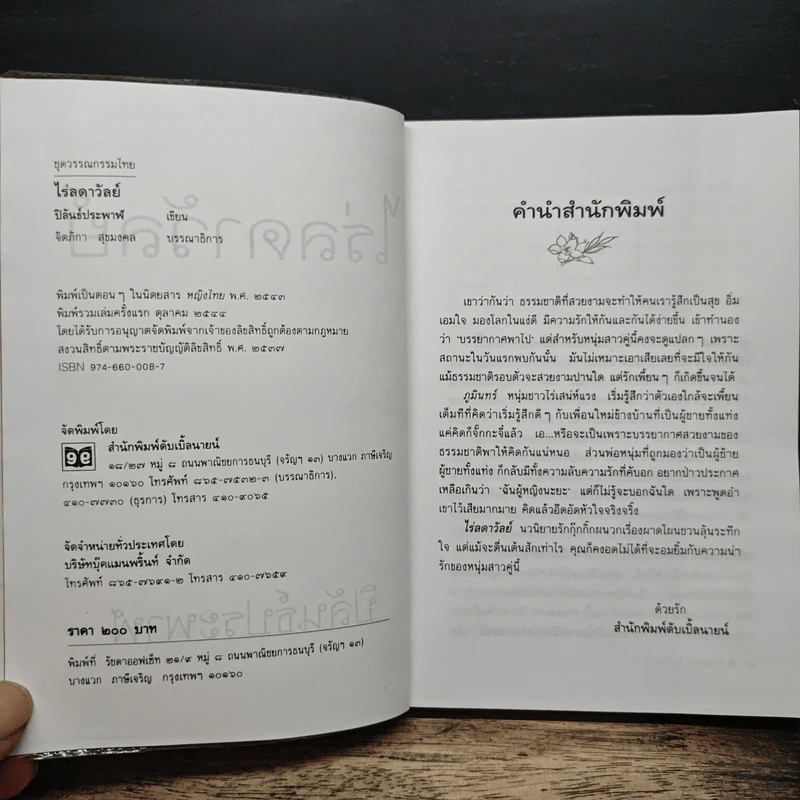 ชุดวรรณกรรมไทย
ไร่ลดาวัลย์
ปิลันธ์ประพาฬ เขียน
จิตภิกา สุขมงคล บรรณาธิการ
พิมพ์เป็นตอนๆ ในนิตยสาร หญิงไทย พ.ศ. ๒๕๔๓
พิมพ์รวมเล่มครั้งแรก ตุลาคม ๒๕๔๔
โดยได้รับการอนุญาตจัดพิมพ์จากเจ้าของลิขสิทธิ์ถูกต้องตามกฎหมาย
สงวนสิทธิ์ตามพระราชบัญญัติลิขสิทธิ์ พ.ศ. ๒๕๓๗
ISBN 974-660-008-7
จัดพิมพ์โดย
สำนักพิมพ์ดับเบิ้ลนายน์
๑๘/๒๗ หมู่ ๘ ถนนพาณิชยการธนบุรี (จรัญฯ ๑๓) บางแวก ภาษีเจริญ
กรุงเทพฯ ๑๐๑๖๐ โทรศัพท์ ๘๖๕-๗๕๓๒-๓ (บรรณาธิการ).
๔๑๐-๗๗๓๐ (ธุรการ) โทรสาร ๔๑๐-๙๐๖๕
จัดจำหน่ายทั่วประเทศโดย
บริษัทบุ๊คแมนพริ้นท์ จำกัด
โทรศัพท์ ๘๖๕-๗๖๙๑-๒ โทรสาร ๔๑๐-๗๖๕๙
ราคา ๒๐๐ บาท
พิมพ์ที่ รัชดาออฟเซ็ท ๒๑/๙ หมู่ ๘ ถนนพาณิชยการธนบุรี (จรัญฯ ๑๓)
บางแวก ภาษีเจริญ กรุงเทพฯ ๑๐๑๖๐
คำนำสำนักพิมพ์
เขาว่ากันว่า ธรรมชาติที่สวยงามจะทำให้คนเรารู้สึกเป็นสุข อิ่ม
เอมใจ มองโลกในแง่ดี มีความรักให้กันและกันได้ง่ายขึ้น เข้าทำนอง
ว่า 'บรรยากาศพาไป' แต่สำหรับหนุ่มสาวคู่นี้คงจะดูแปลกๆ เพราะ
สถานะในวันแรกพบกันนั้น มันไม่เหมาะเอาเสียเลยที่จะมีใจให้กัน
แม้ธรรมชาติรอบตัวจะสวยงามปานใด แต่รักเพี้ยนๆ ก็เกิดขึ้นจนได้
ภูมินทร์ หนุ่มชาวไร่เสน่ห์แรง เริ่มรู้สึกว่าตัวเองใกล้จะเพี้ยน
เต็มทีที่คิดว่าเริ่มรู้สึกดีๆ กับเพื่อนใหม่ข้างบ้านที่เป็นผู้ชายทั้งแท่ง
แค่คิดก็จั๊กกะจี๋แล้ว เอ...หรือจะเป็นเพราะบรรยากาศสวยงามของ
ธรรมชาติพาให้คิดกันแน่หนอ ส่วนพ่อหนุ่มที่ถูกมองว่าเป็นผู้ช้าย
ผู้ชายทั้งแท่ง ก็กลับมีทั้งความลับความรักที่คับอก อยากป่าวประกาศ
เหลือเกินว่า 'ฉันผู้หญิงนะยะ' แต่ก็ไม่รู้จะบอกฉันใด เพราะพูดอำ
เขาไว้เสียมากมาย คิดแล้วอึดอัดหัวใจจริงจริ๊ง
ไร่ลดาวัลย์ นวนิยายรักกุ๊กกิ๊กผนวกเรื่องผาดโผนชวนลุ้นระทึก
ใจ แต่แม้จะตื่นเต้นสักเท่าไร คุณก็คงอดไม่ได้ที่จะอมยิ้มกับความน่า
รักของหนุ่มสาวคู่นี้
ด้วยรัก
สำนักพิมพ์ดับเบิ้ลนายน์